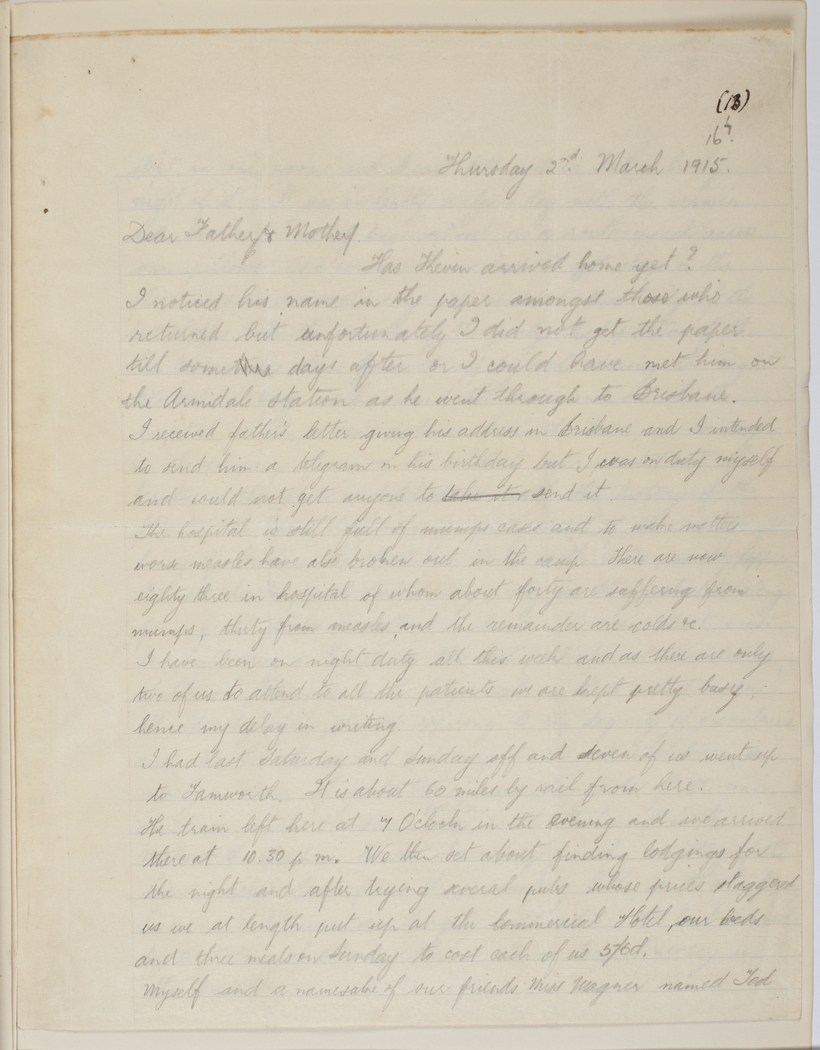 (13)
16th.
Thursday 2nd. March 1915.
Dear Father & Mother.
Has Kevin arrived home yet?
I noticed his name in the paper amongst those who
returned but unfortunately I did not get the paper
till some days after or I could have met him on
the Armidale station as he went through to Brisbane.
I received father's letter giving his address in Brisbane and I intended
to send him a telegram on his birthday but I was on duty myself
and could not get anyone to take it send it.
The hospital is still full of mumps cases and to make matters
worse measles have also broken out in the camp There are now
eighty three in hospital of whom about forty are suffering from
mumps, thirty from measles, and the remainder are colds &c.
I have been on night duty all this week and as there are only
two of us to attend to all the patients we are kept pretty busy,
hence my delay in writing.
I had last Saturday and Sunday off and seven of us went up
to Tamworth. It is about 60 miles by rail from here.
The train left here at 7 O'clock in the evening and we arrived
there at 10.30 p.m. We then set about finding lodgings for
the night and after trying several pubs whose prices staggered
us we at length put up at the Commercial Hotel, our beds
and three meals on Sunday to cost each of us 5/6d.
Myself and a namesake of our friends Miss Wagner named Ted